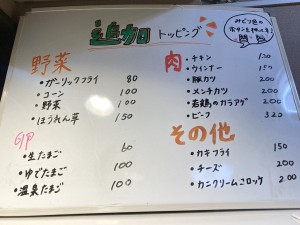 追加 トッピング
みどり色の
ボタンを押って下さい
野菜
・ガーリックフライ 80
・コーン 100
・野菜 100
・ほうれん草 150
卵
・生たまご 60
・ゆでたまご 100
・温泉たまご 100
肉
・チキン 120
・ウィンナー 150
・豚カツ 200
・メンチカツ 200
・若鶏のカラアゲ 200
・ビーフ 320
その他
・カキフライ 150
・チーズ 200
・カニクリームコロッケ 200